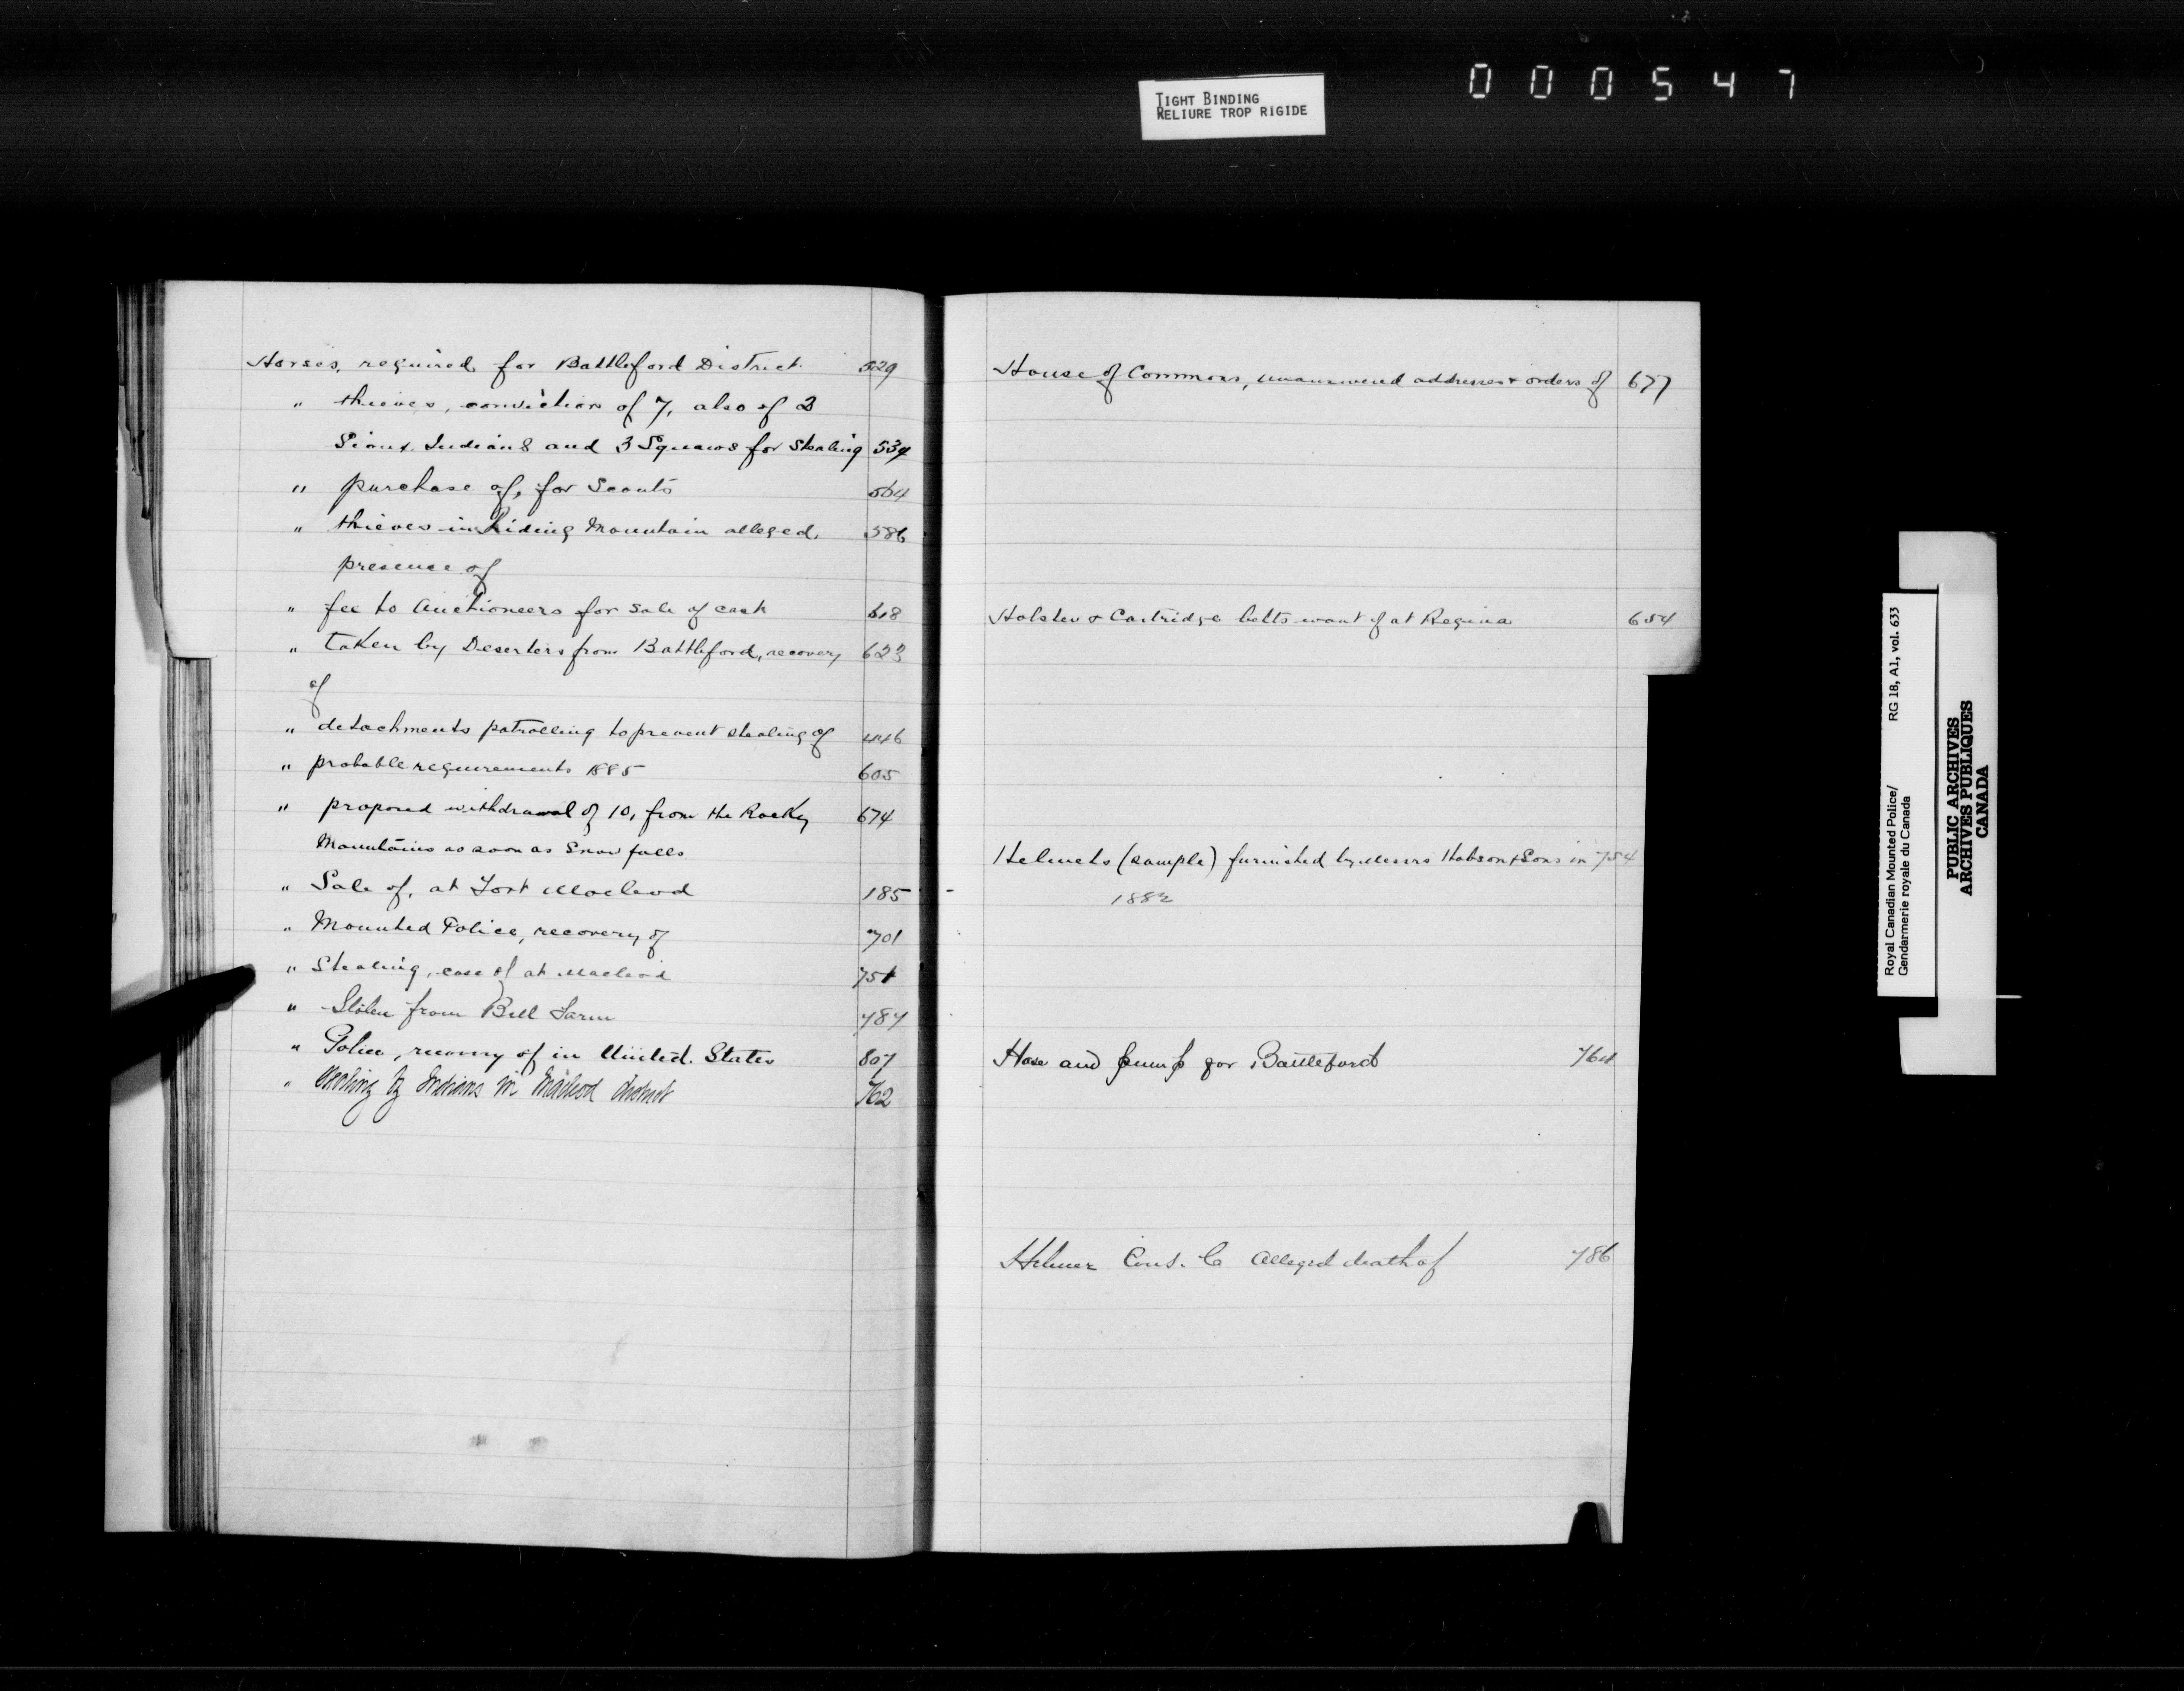 TIGHT BINDING
RELIURE TROP RIGIDE
000547
Horses, required for Battleford District 529
" thieves, conviction of 7, also of 2
Sioux Indians and 3 Squaws for Stealing 534
" purchase of, for Scouts 564
" thieves in Riding Mountain alleged, 586
presence of
" fee to Auctioneers for sale of cast 618
" taken by Deserters from Battleford, recovery 623
of
" detachments patrolling to prevent stealing of 446
" probable requirements 1885 605
" proposed withdrawal of 10, from the Rocky 674
Mountains as soon as Snow falls
" Sale of, at Fort Macleod 185
" Mounted Police, recovery of 701
" Stealing, case of at Macleod 751
" Stolen from Bell Farm 787
" Police, recovery of in United States 807
" Stealing by Indians in Macleod district 762
House of Commons, unanswered addresses & orders of 677
Holster & Cartridge belts want of at Regina 654
Helmets (sample) furnished by Messrs Hobson & Sons in 754
1882
Hose and pump for Battleford
Cons. C Alleged death of 786
Royal Canadian Mounted Police/
Gendarmerie royale du Canada
RG 18, A1, vol. 633
PUBLIC ARCHIVES
ARCHIVES PUBLIQUES
CANADA